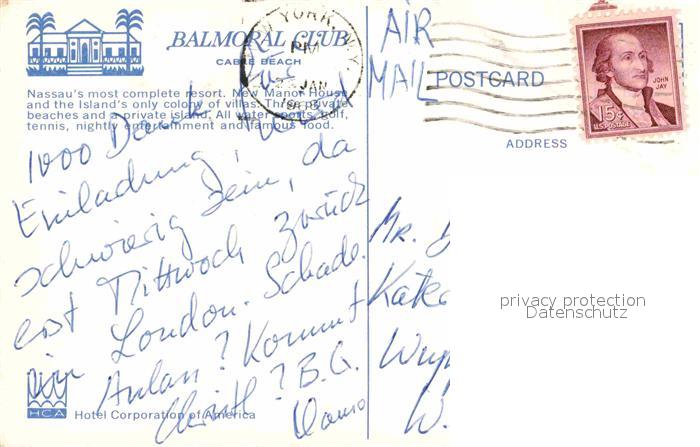 BALMORAL CLUB
CABLE BEACH
Nassau's most complete resort. New Manor House
and the Island's only colony of villas. Three private
beaches and a private island. All water sports, golf,
tennis, nightly entertainment and famous food.
1000 Dank
Einladung, wird
schwierig sein, da
erst Mittwoch zurück
in London. Schade.
Anlan? Kommt
Christl? B.G.
HCA
Hotel Corporation of America
NEW YORK, N.Y.
PM
JAN
AIR
MAIL
POSTCARD
JOHN
JAY
15¢
U.S. POSTAGE
ADDRESS
Mr.
W.
privacy protection
Datenschutz